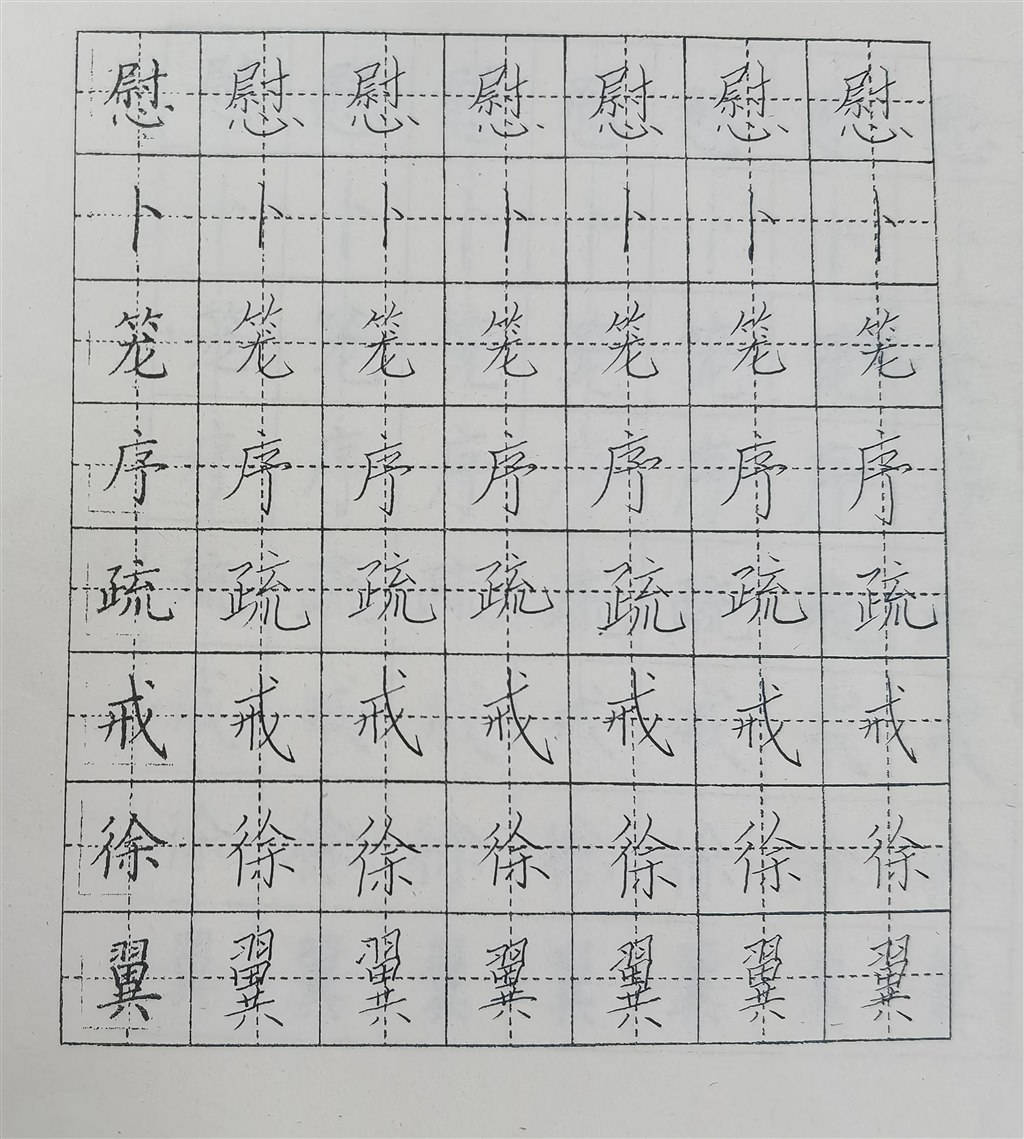 慰慰慰慰慰慰慰
卜卜卜卜卜卜卜
笼笼笼笼笼笼笼
序序序序序序序
疏疏疏疏疏疏疏
戒戒戒戒戒戒戒
徐徐徐徐徐徐徐
翼翼翼翼翼翼翼